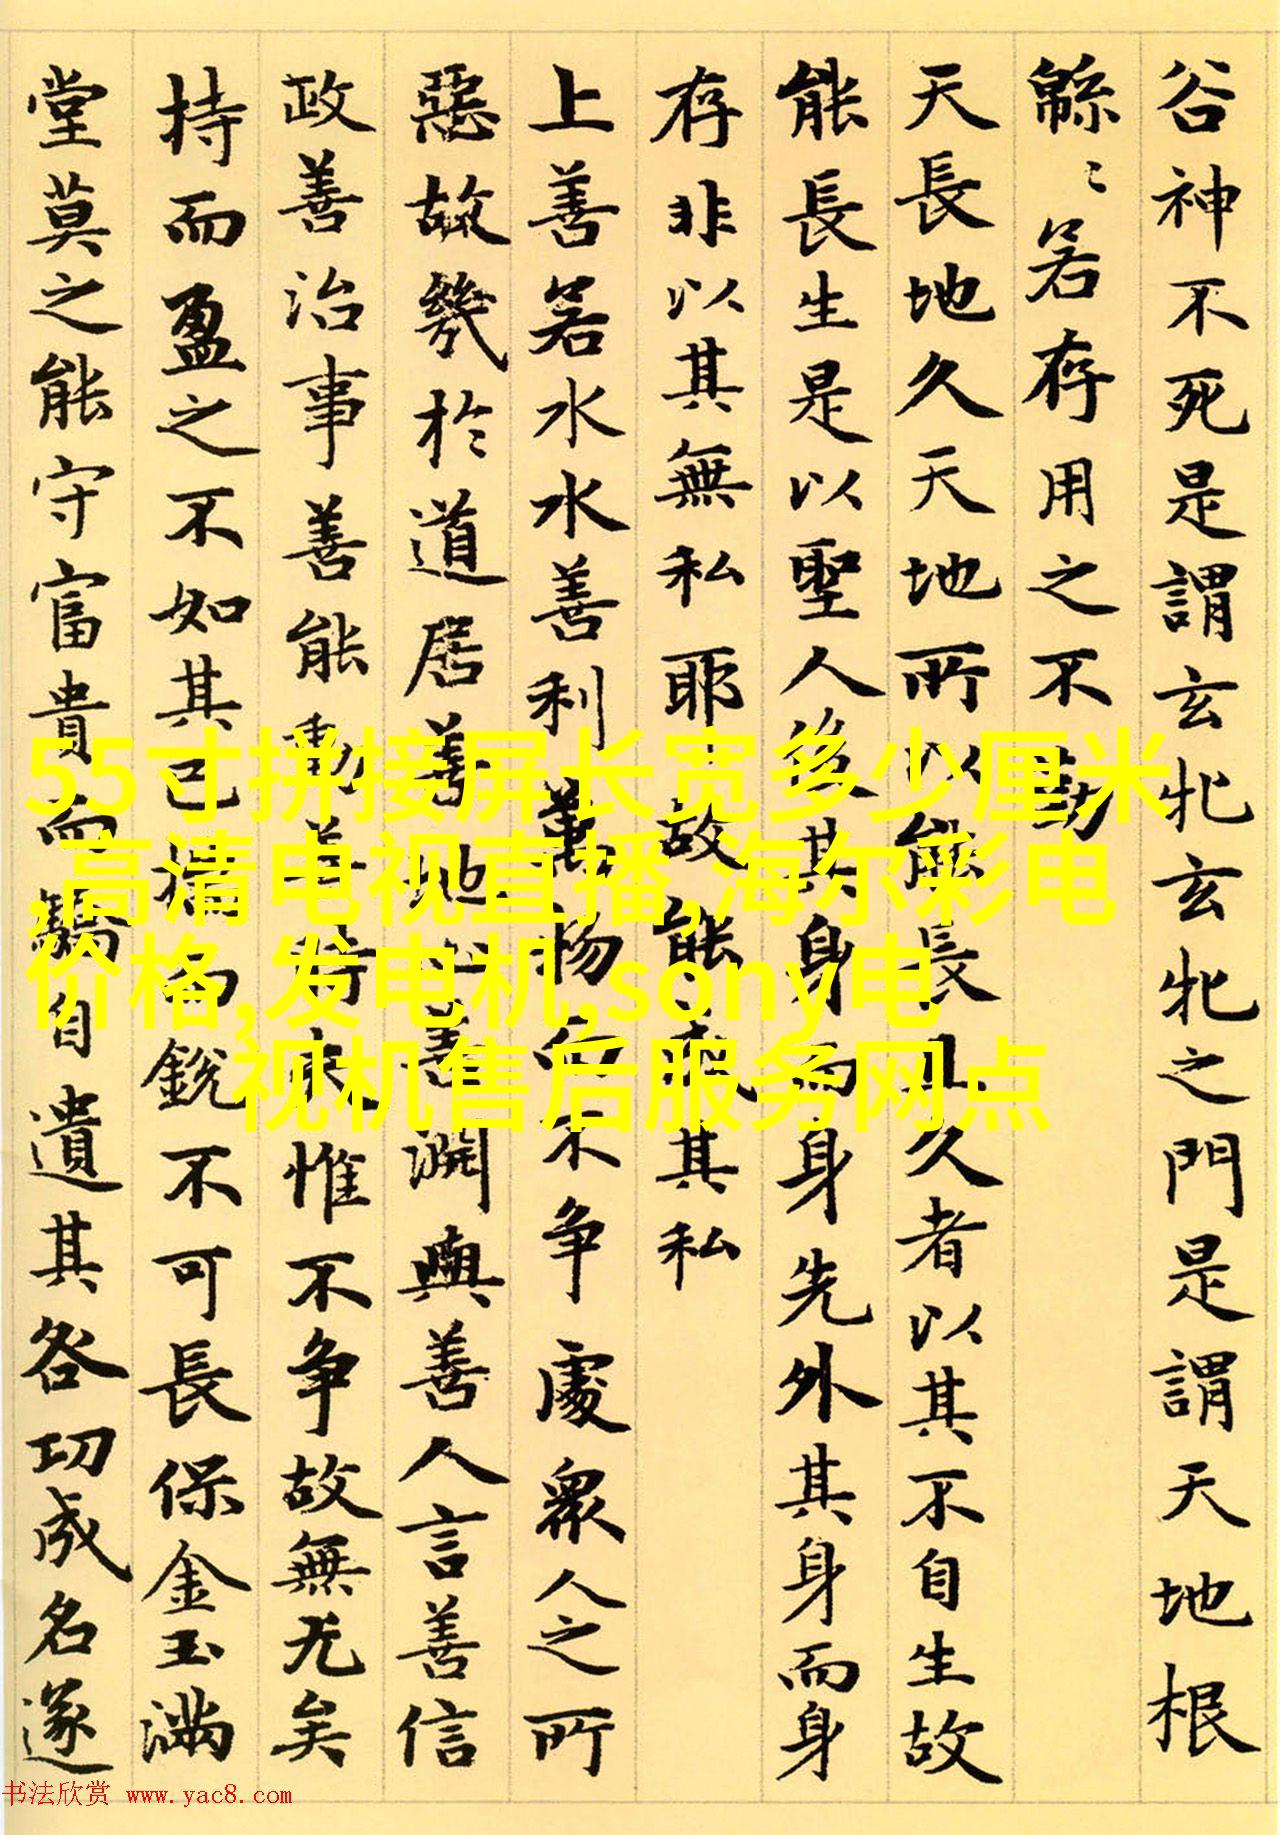 谷神不死是謂玄牝玄牝之門是謂天地根
緜〻若存用之不勤
天長地久天地所以能長且久者以其不自生故
能長生是以聖人後其身而身先外其身而身
存非以其無私耶故能成其私
上善若水水善利萬物而不争處衆人之所
惡故幾於道居善地心善渊與善人言善信
政善治事善能動善時夫惟不争故無尤矣
持而盈之不如其已揣而銳不可長保金玉满
堂莫之能守富貴而驕自遺其咎功成名遂
55寸拼接屏长宽多少厘米
,高清电视直播,海尔彩电
价格,发电机,sony电
视机售后服务网点
书法欣赏 www.yac8.com